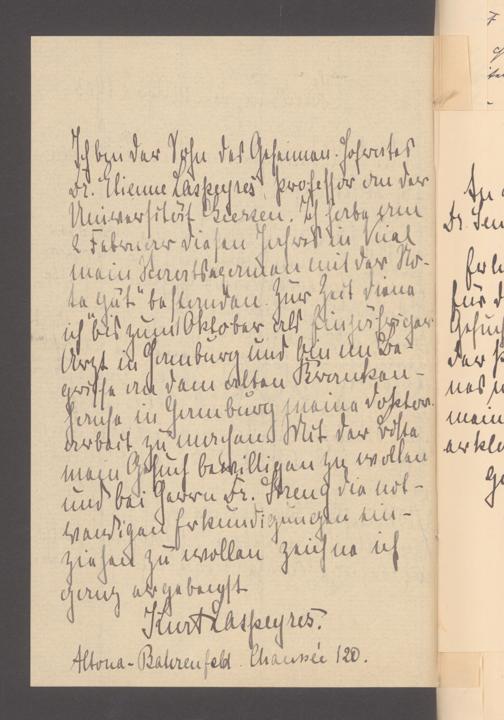 Ich bin der Sohn des Geheimen Hofrates
Dr. Etienne Laspeyres, Professor an der
Universität Giessen. Ich habe am
2 Februar dieses Jahres in Kiel
mein Staatsexamen mit der No-
te "gut" bestanden. Zur Zeit diene
ich bis zum 1 Oktober als Einjähriger
Arzt in Hamburg und bin im Be-
griffe an dem alten Kranken-
hause in Hamburg meine Doktor-
arbeit zu machen. Mit der Bitte
mein Gesuch bewilligen zu wollen
und bei Herrn Dr. Streng die not-
wendigen Erkundigungen ein-
ziehen zu wollen zeichne ich
ganz ergebenst
Kurt Laspeyres.
Altona-Bahrenfeld. Chaussée 120.